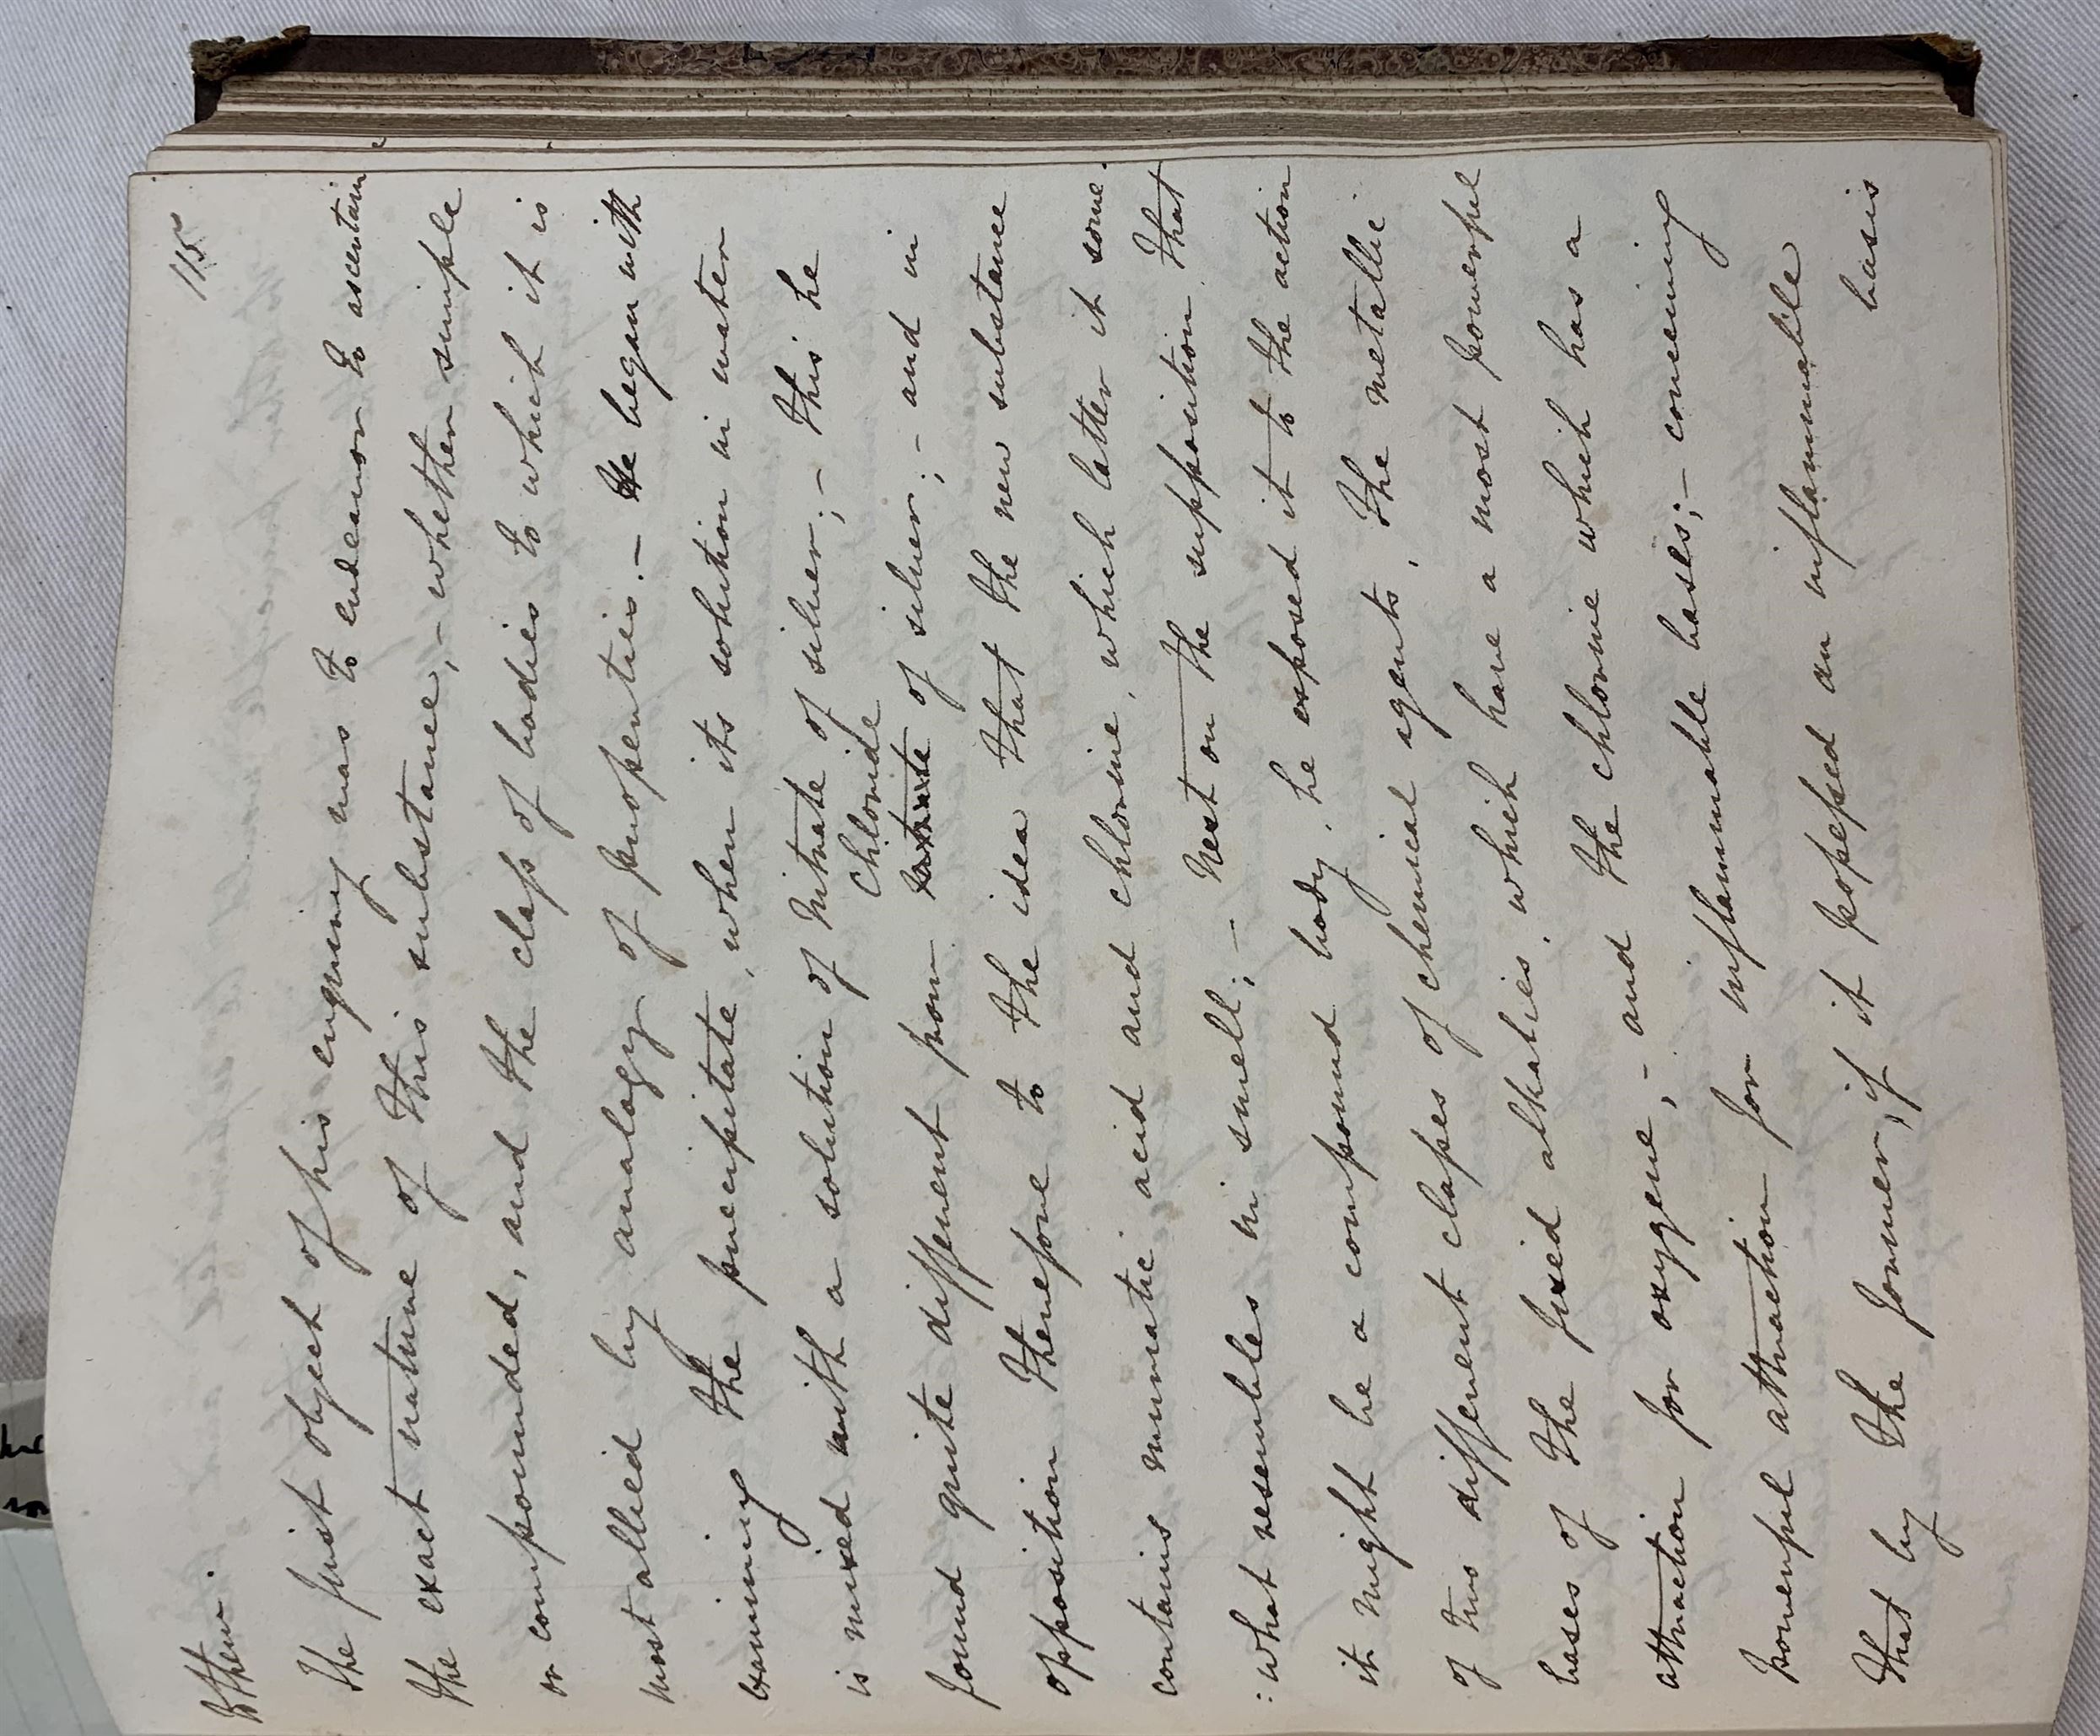 115
Ether.
The first object of his enquiry was to endeavor to ascertain
the exact nature of this substance,- whether simple
or compounded, and the class of bodies to which it is
most allied by analogy of properties.- He began with
examining the precipitate, when its solution in water
is mixed with a solution of Nitrate of silver;- this he
Chloride
found quite different from of silver;- and in
opposition therefore to the idea that the new substance
contains muriatic acid and chlorine, which latter it some-
:what resembles in smell;- Next on the supposition, that
it might be a compound body, he exposed it to the action
of two different classes of chemical agents, the metallic
bases of the fixed alkalies, which have a most powerful
attraction for oxygene,- and the chlorine which has a
powerful attraction for inflammable bases;- conceiving
that by the former, if it possessed an inflammable
basis